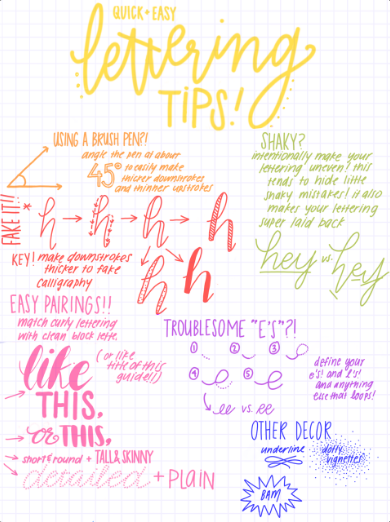 QUICK + EASY
lettering
TIPS!
USING A BRUSH PEN?!
angle the pen at about
45° to easily make
thicker downstrokes
and thinner upstrokes
SHAKY?
intentionally make your
lettering uneven! this
tends to hide little
shaky mistakes! it also
makes your lettering
super laid back
hey vs. hey
FAKE IT!!
h → h → h → h
h h
KEY! make downstrokes
thicker to fake
calligraphy
EASY PAIRINGS!!
match curly lettering
with clean block lette.
like
THIS,
(or like
title of this
guide!!)
→ or THIS,
→ short & round + TALL & SKINNY
→ detailed + PLAIN
TROUBLESOME "E'S"?!
1 2 3
4 5
ee vs. ee
define your
e's! and l's!
and anything
else that loops!
OTHER DECOR
underline
dotty
vignettes
BAM